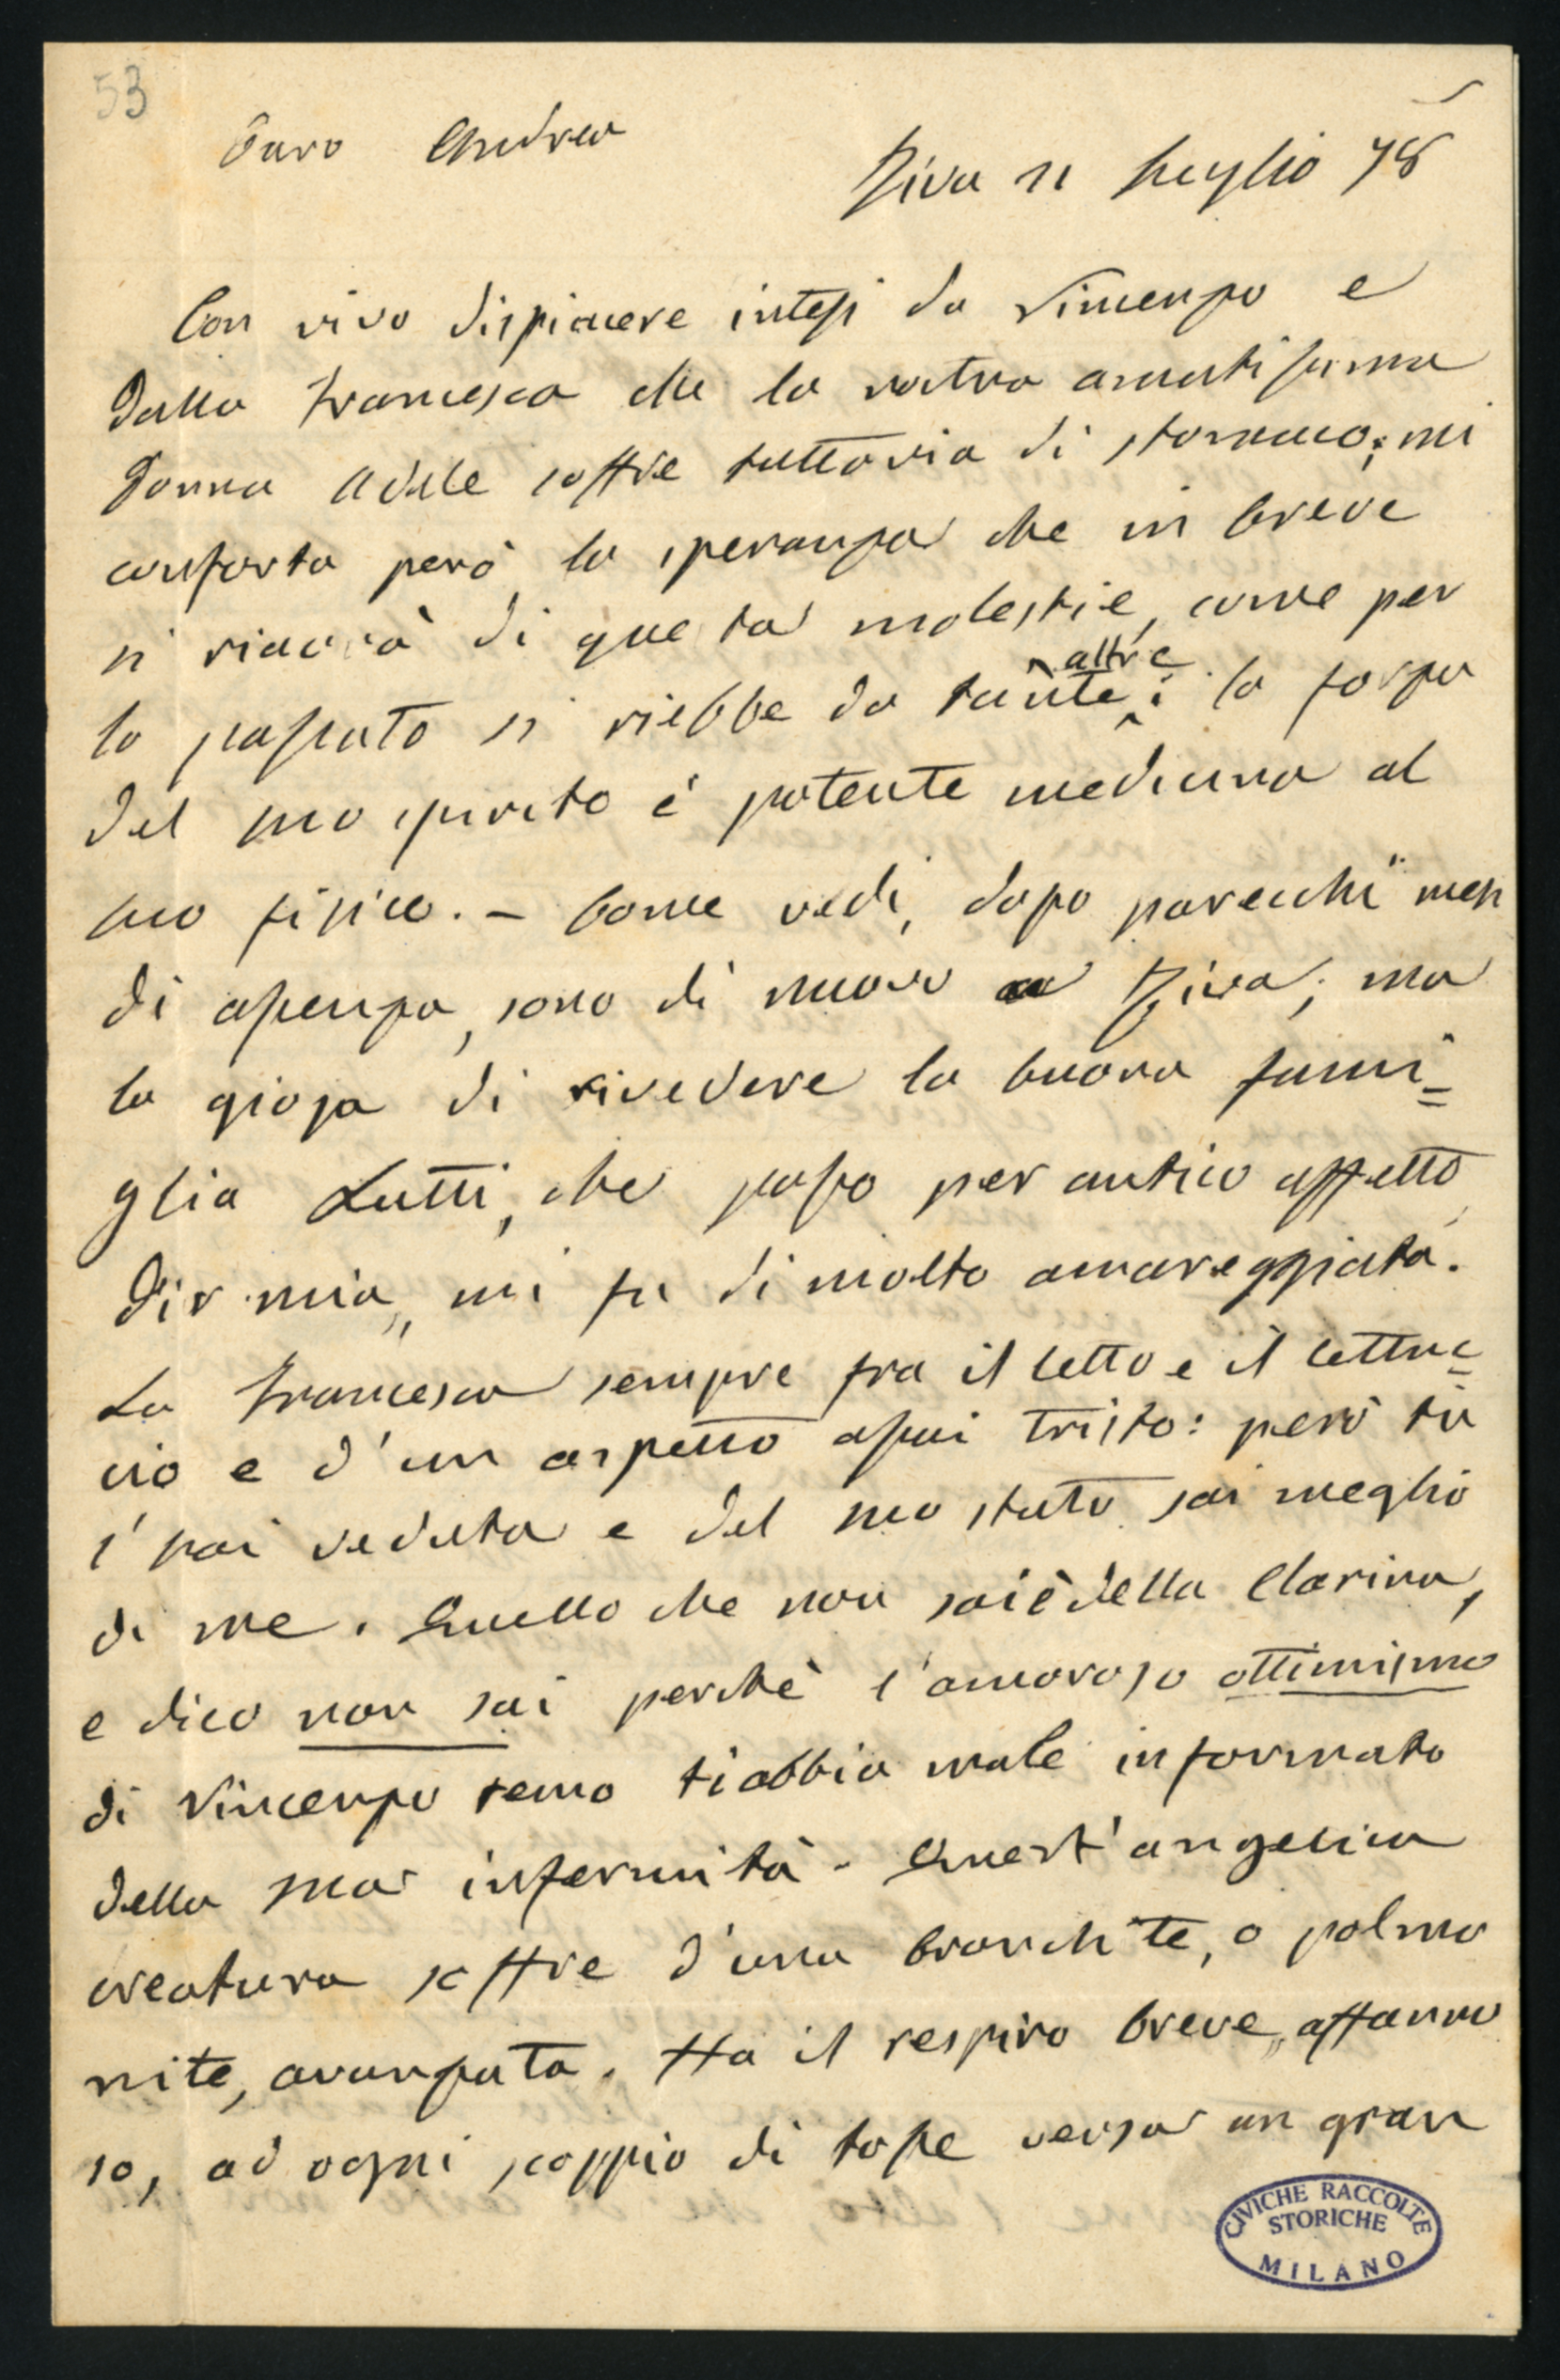 53
Caro Andrea
Riva 11 Luglio 78
Con vivo dispiacere intesi da Vincenzo e
dalla Francesca che la nostra amatissima
Donna Adele soffre tuttavia di stomaco; mi
conforta però la speranza che in breve
si riavrà di questa molestie, come per
altre
lo passato si riebbe da tante; la forza
del suo spirito è potente medicina al
suo fisico. – Come vedi, dopo parecchi mesi
di assenza, sono di nuovo a Riva; ma
la gioja di rivedere la buona fami=
glia Lutti, che posso per antico affetto
dir mia, mi fu di molto amareggiata.
La Francesca sempre fra il letto e il lettuc=
cio e d'un aspetto assai tristo: però tu
l'hai veduta e del suo stato sai meglio
di me. Quello che non sai è della Clarina,
e dico non sai perchè l'amoroso ottimismo
di Vincenzo temo ti abbia male informato
della sua infermità. Quest'angelica
creatura soffre d'una bronchite, o polmo
nite, avanzata. Ha il respiro breve, affanno
so, ad ogni scoppio di tosse versa un gran
CIVICHE RACCOLTE
STORICHE
MILANO